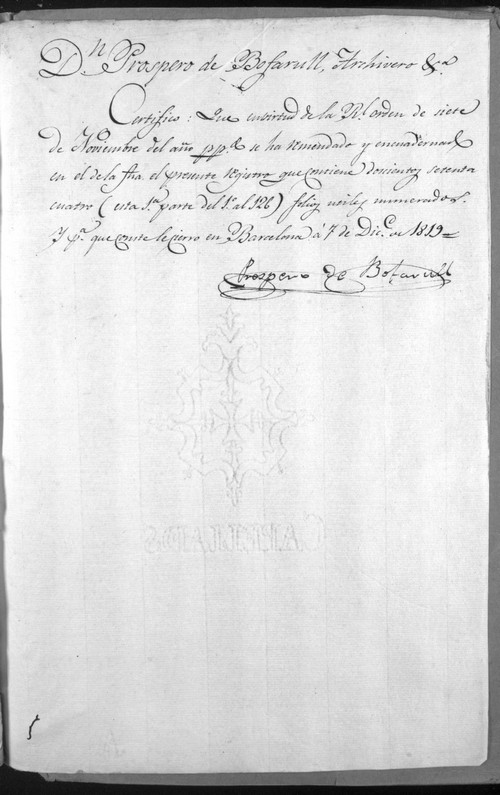 Dn. Prospero de Bofarull, Archivero &a.
Certifico: Que en virtud de la Rl. orden de siete
de Noviembre del año pp.o se ha remendado y encuadernado
en el de la fha. el presente registro que contiene doscientos setenta
cuatro (esta 1a. parte del 1o. al 126) folios utiles numerados.
Y pa. que conste le cierro en Barcelona á 7 de Dice. de 1819=
Prospero de Bofarull
CAPELLADES